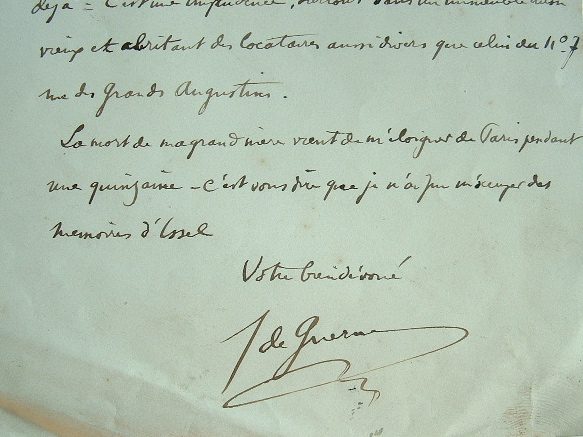 déjà = C'est une imprudence, surtout dans un immeuble aussi
vieux et abritant des locataires aussi divers que celui du No 7
rue des Grands Augustins.
La mort de ma grand mère vient de m'éloigner de Paris pendant
une quinzaine - C'est vous dire que je n'ai pu m'occuper des
mémoires d'Issel
Votre bien dévoué
J de Guerne